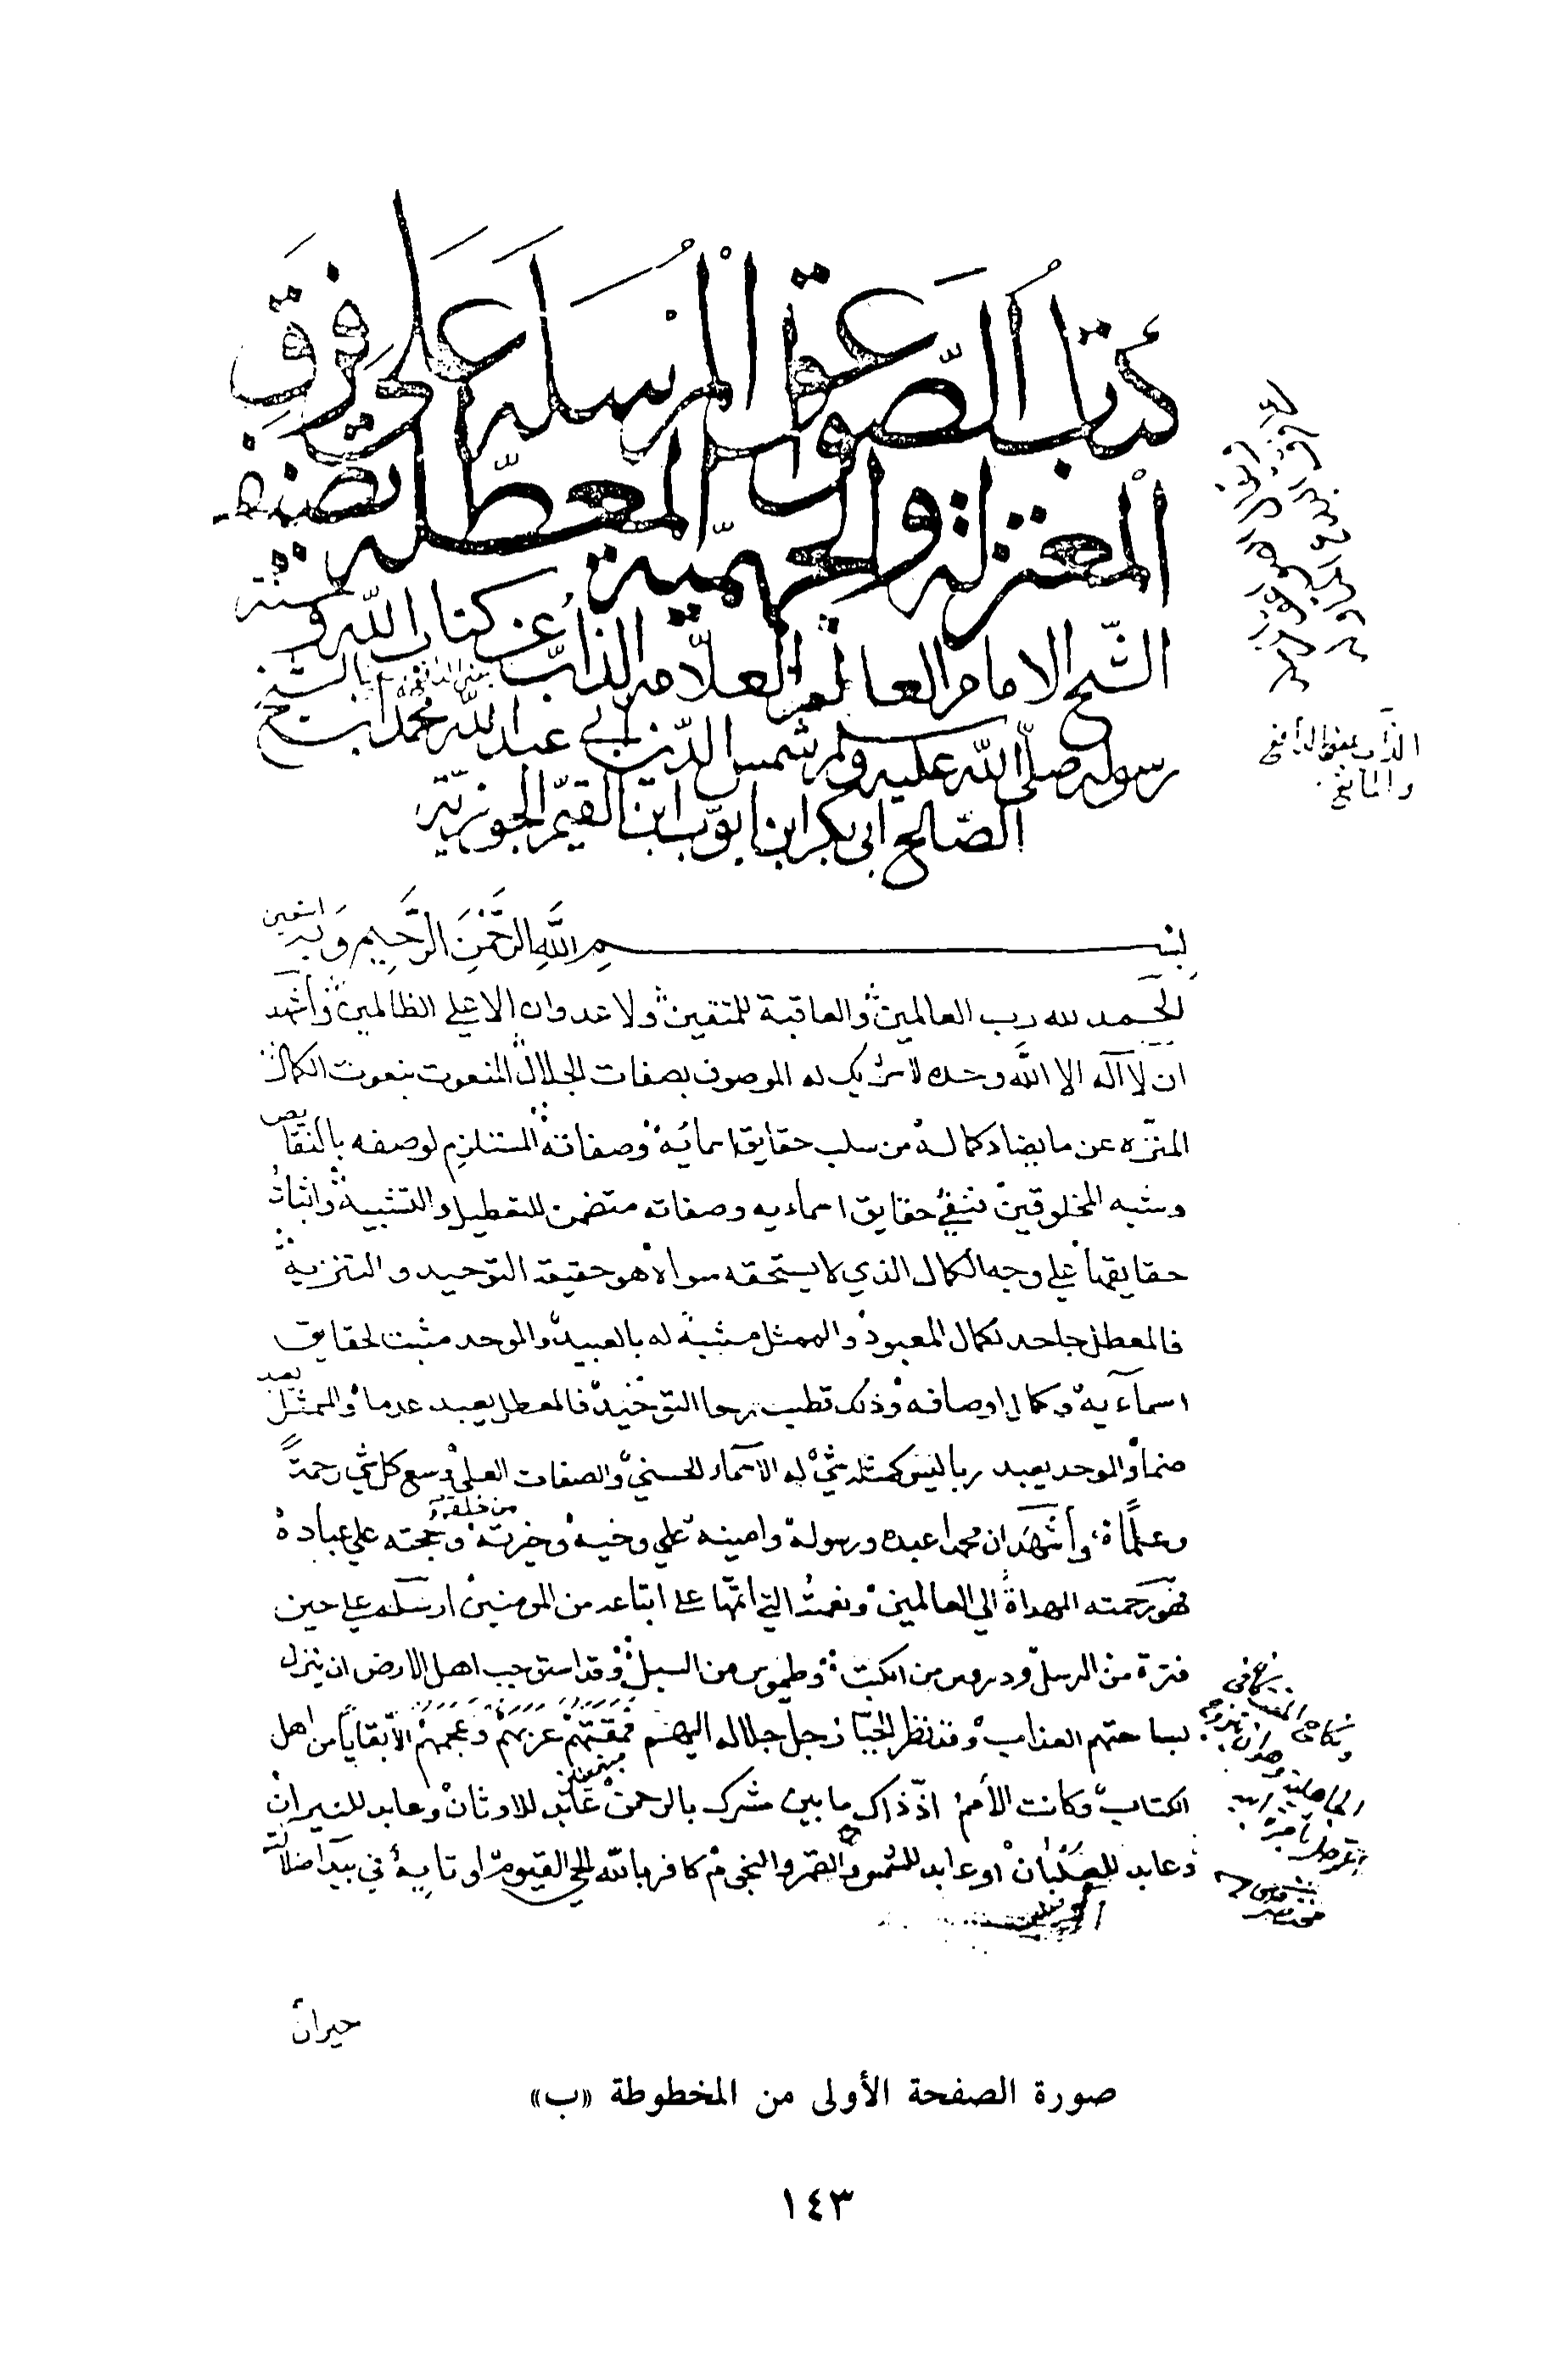 كتاب الصواعق المرسلة على فرق
المعتزلة والجهمية المعطلة تصنيف
الشيخ الامام العالم العلامة الذاب عن كتاب الله وسنة
رسوله صلى الله عليه وسلم شمس الدين ابي عبد الله محمد ابن الشيخ
الصالح ابي بكر ابن ايوب ابن القيم الجوزية
الذاب بمعنى الدافع
والمانع
بسم الله الرحمن الرحيم وبه استعين
الحمد لله رب العالمين والعاقبة للمتقين ولا عدوان الا علي الظالمين وأشهد
ان لا آله الا الله وحده لا شريك له الموصوف بصفات الجلال المنعوت بنعوت الكمال
المنزه عن ما يضاد كماله من سلب حقايق اسمائه وصفاته المستلزم لوصفه بالنقايص
وشبه المخلوقين فنفي حقايق اسماءيه وصفاته متضمن للتعطيل والتشبيه واثبات
حقايقها علي وجه الكمال الذي لا يستحقه سواه هو حقيقة التوحيد والتنزيه
فالمعطل جاحد لكمال المعبود والممثل مشبه له بالعبيد والموحد مثبت لحقايق
اسمآءيه وكمال اوصافه وذلك قطب رحا التوحيد فالمعطل يعبد عدما والممثل يعبد
صنما والموحد يعبد ربا ليس كمثله شيء له الاسماء الحسني والصفات العلي وسع كل شي رحمة
وعلما، وأشهد ان محمدا عبده ورسوله وامينه علي وحيه وخيرته من خلقه وحجته علي عباده
فهو رحمته المهداة الي العالمين ونعمته التي اتمها علي اتباعه من المومنين ارسله علي حين
فترة من الرسل ودروس من الكتب وطموس من السبل وقد استوجب اهل الارض ان ينزل
بساحتهم العذاب وقد نظر الجبار جل جلاله اليهم فمقتهم عربهم وعجمهم الا بقايا من اهل
الكتاب وكانت الأمم اذ ذاك ما بين مشرك بالرحمن عابد للاوثان وعابد للنيران
وعابد للصلبان او عابد للشمس والقمر والنجوم كافر بالله الحي القيوم او تايه في بيدآ ضلالته
حيران
صورة الصفحة الأولى من المخطوطة «ب»
١٤٣